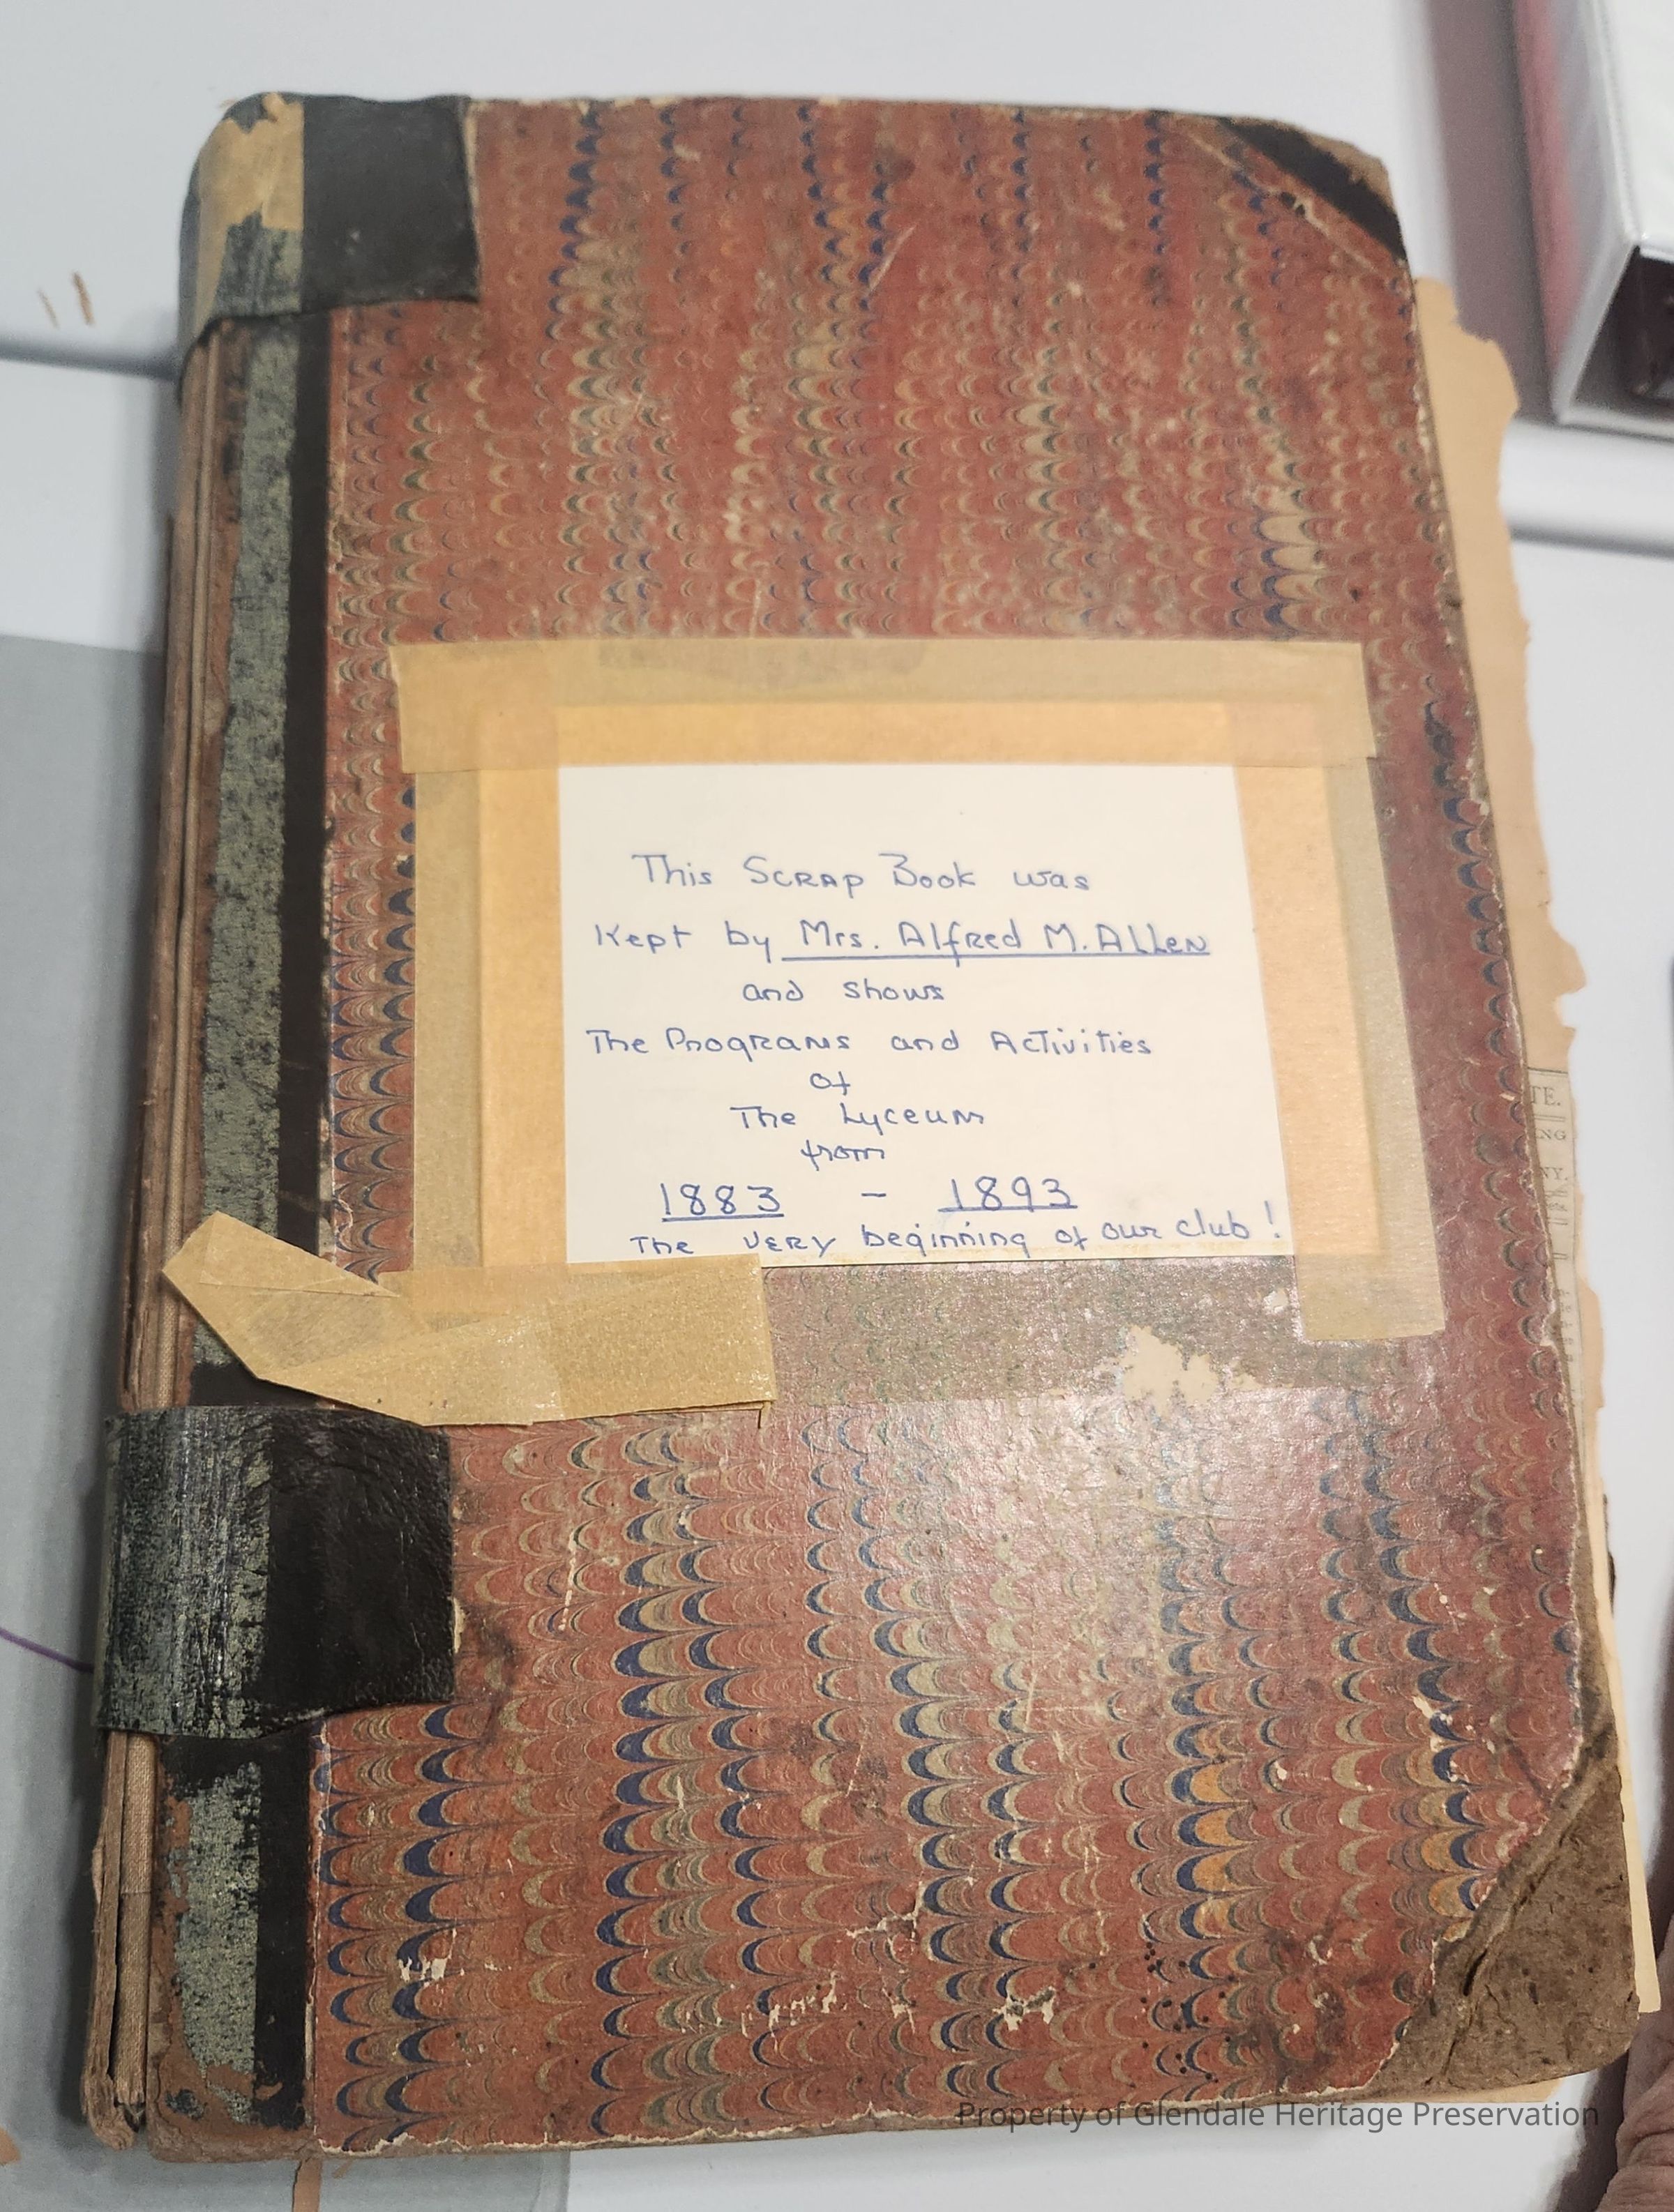 This Scrap Book was
Kept by Mrs. Alfred M. Allen
and shows
The Programs and Activities
of
The Lyceum
from
1883 - 1893
The very beginning of our club!
TE.
NG
NY.
Property of Glendale Heritage Preservation